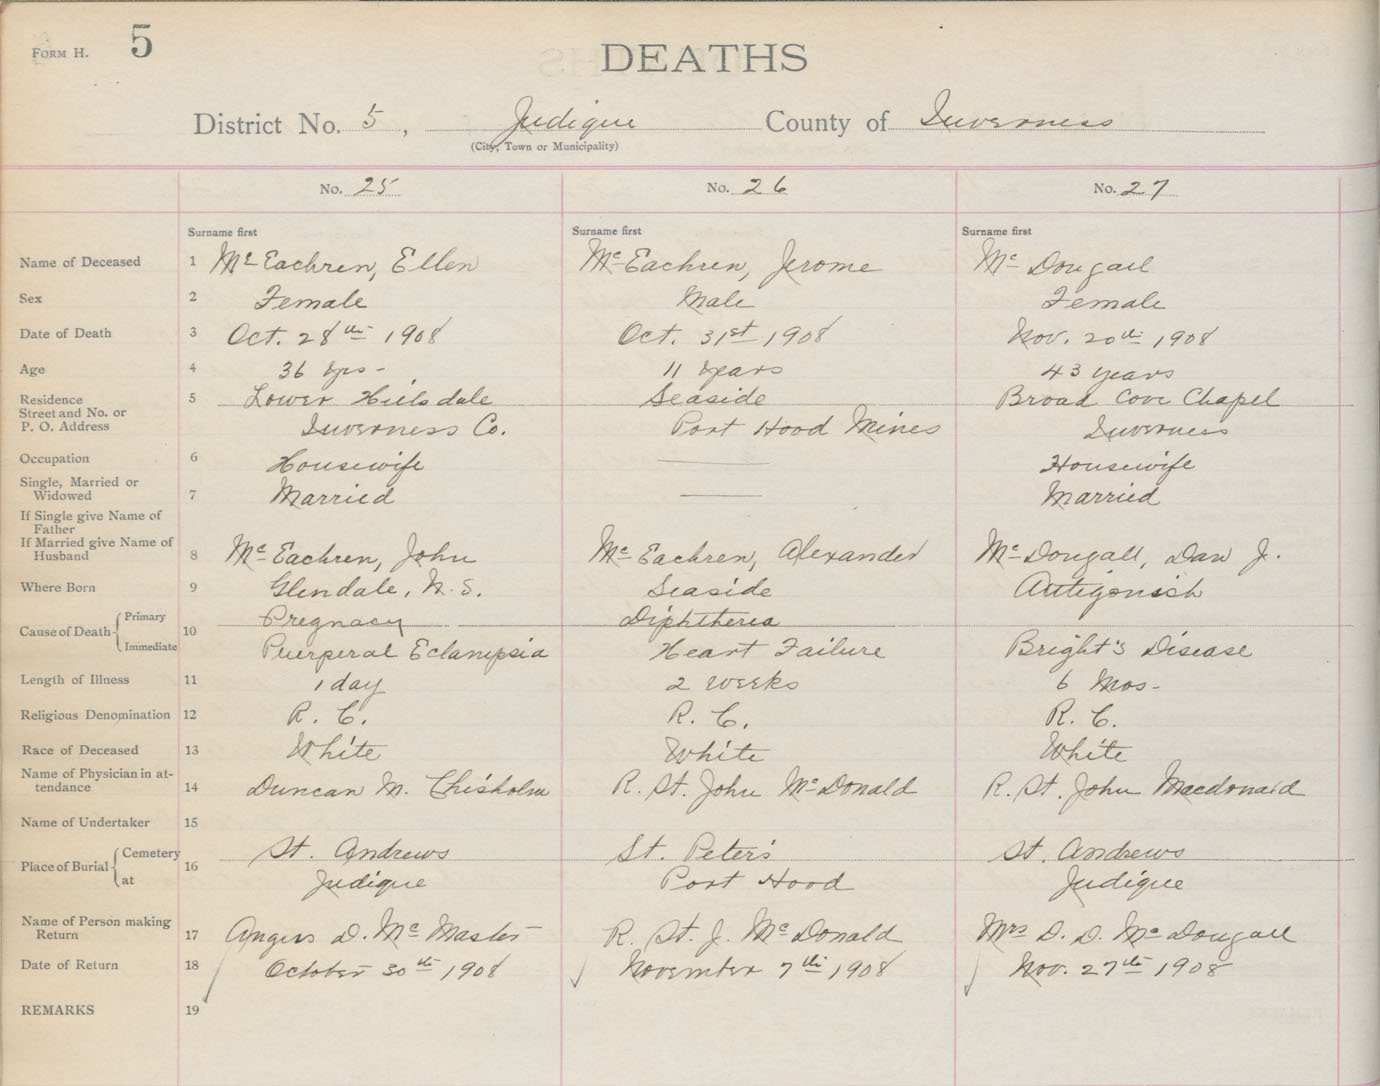 FORM H. 5
DEATHS
District No. 5, Judique County of Inverness
(City, Town or Municipality)
No. 25 No. 26 No. 27
Surname first Surname first Surname first
Name of Deceased 1 McEachren, Ellen McEachren, Jerome Mc Dougall
Sex 2 Female Male Female
Date of Death 3 Oct. 28th 1908 Oct. 31st 1908 Nov. 20th 1908
Age 4 36 yrs - 11 years 43 years
Residence 5 Lower Hillsdale Seaside Broad Cove Chapel
Street and No. or
P. O. Address Inverness Co. Port Hood Mines Inverness
Occupation 6 Housewife Housewife
Single, Married or
Widowed 7 Married Married
If Single give Name of
Father
If Married give Name of
Husband 8 McEachren, John McEachren, Alexander McDougall, Dan J.
Where Born 9 Glendale, N.S. Seaside Antigonish
Cause of Death 10 Primary Pregnacy Diphtheria
Immediate Puerperal Eclampsia Heart Failure Bright's Disease
Length of Illness 11 1 day 2 weeks 6 Mos-
Religious Denomination 12 R. C. R. C. R. C.
Race of Deceased 13 White White White
Name of Physician in at-
tendance 14 Duncan M. Chisholm R. St. John McDonald R. St. John Macdonald
Name of Undertaker 15
Place of Burial 16 Cemetery St. Andrews St. Peter's St. Andrews
at Judique Port Hood Judique
Name of Person making
Return 17 Angus D. McMaster R. St. J. McDonald Mrs D. D. McDougall
Date of Return 18 October 30th 1908 November 7th 1908 Nov. 27th 1908
REMARKS 19